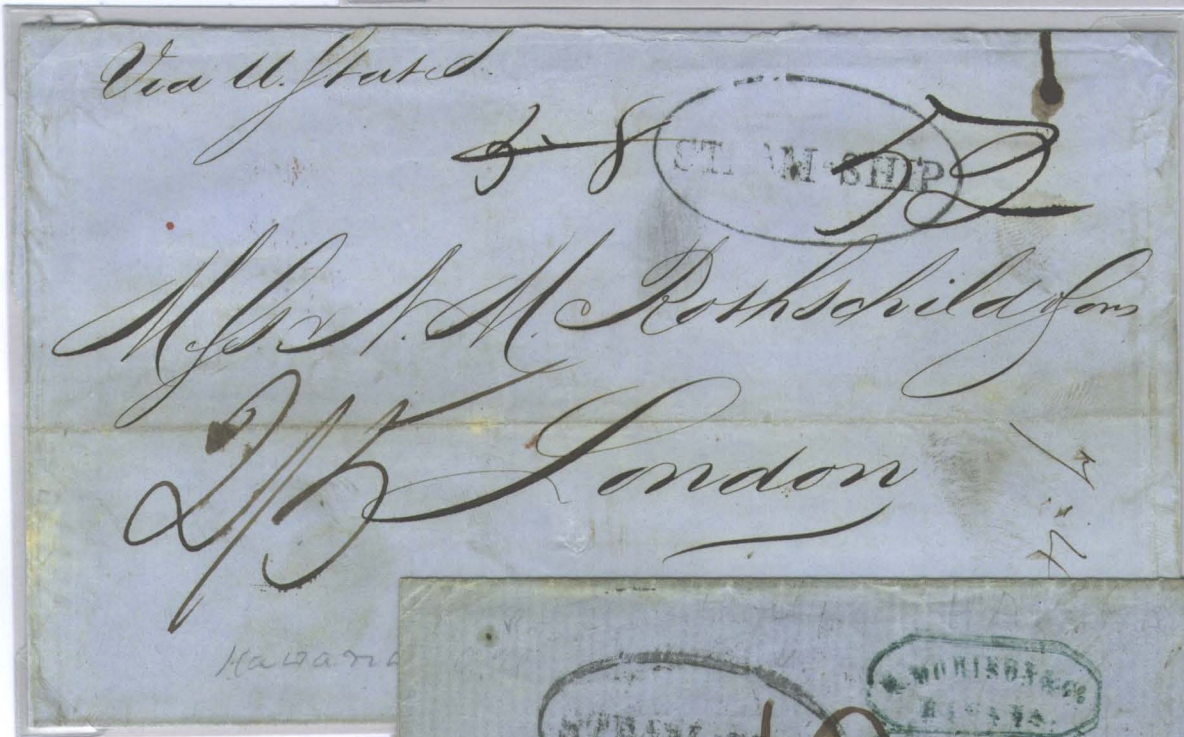 Via U. States
8
STEAM-SHIP
52
Mssrs. N. M. Rothschild & Sons
2/5
London
Havana
MORISON & Co
HAVANA.
STEAM